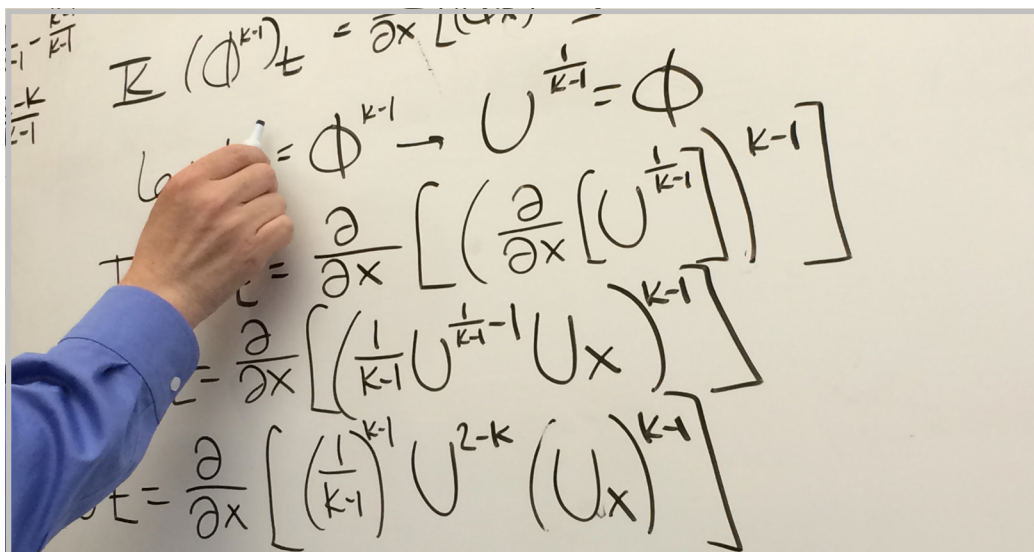 (ϕ^{k-1})_t = ∂/∂x [(
= ϕ^{k-1} → U^{1/(k-1)} = ϕ
t = ∂/∂x [(∂/∂x [U^{1/(k-1)}])^{k-1}]
= ∂/∂x [(1/(k-1) U^{1/(k-1) - 1} U_x)^{k-1}]
t = ∂/∂x [(1/(k-1))^{k-1} U^{2-k} (U_x)^{k-1}]